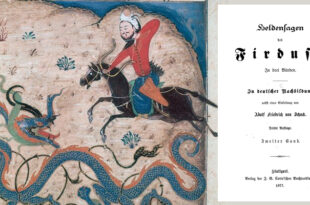 Heldensagen
des
Firdusi
In drei Bänden.
In deutscher Nachbildung
nebst einer Einleitung von
Adolf Friedrich von Schack.
Dritte Auflage.
Zweiter Band.
Stuttgart.
Verlag der J. G. Cotta'schen Buchhandlung
1877.